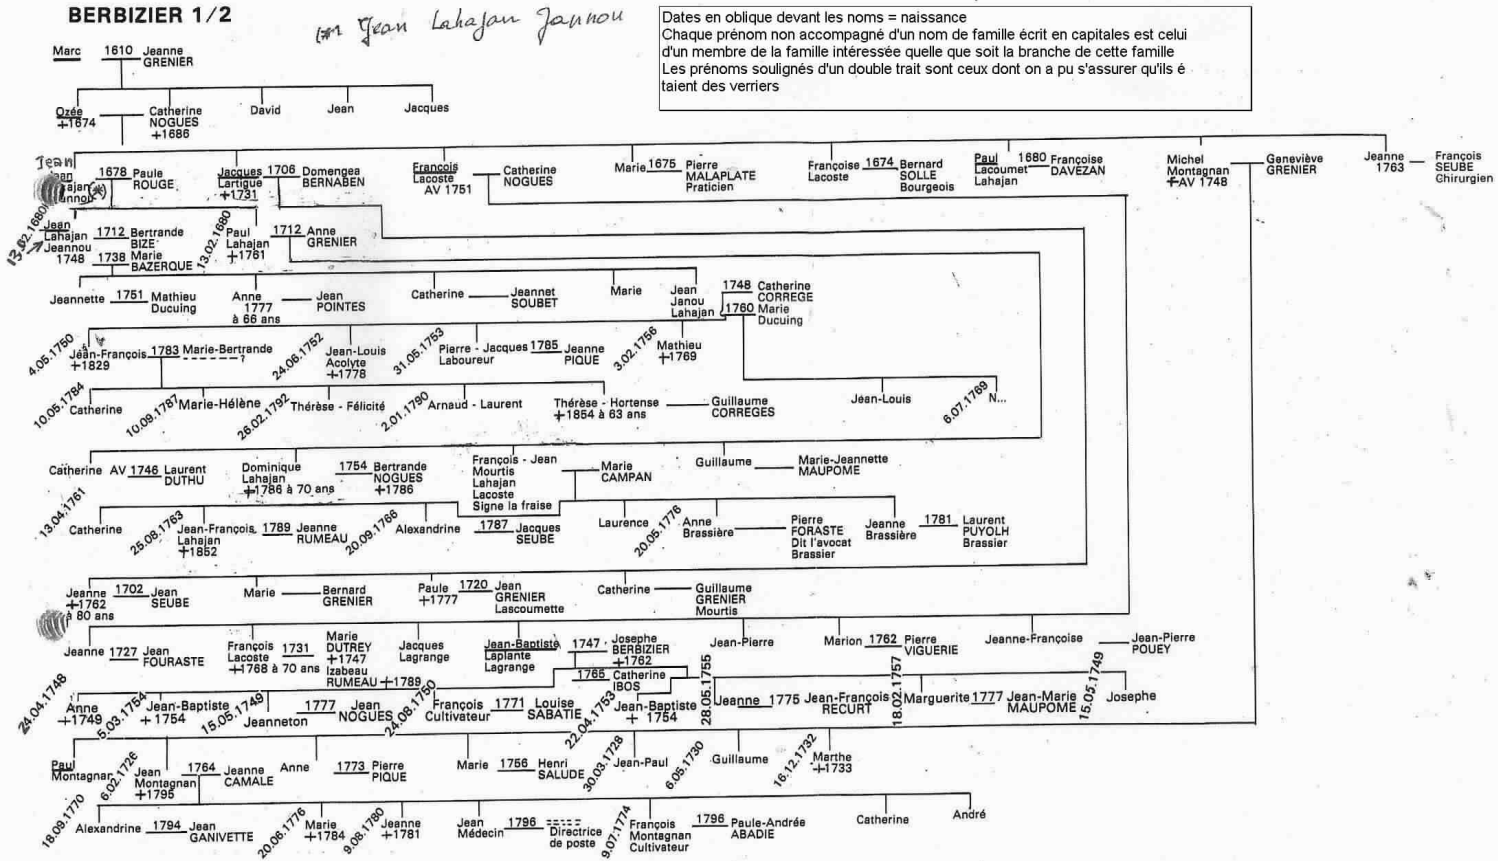 BERBIZIER 1/2
Jean Lahajan Jannou
Dates en oblique devant les noms = naissance
Chaque prénom non accompagné d'un nom de famille écrit en capitales est celui
d'un membre de la famille intéressée quelle que soit la branche de cette famille
Les prénoms soulignés d'un double trait sont ceux dont on a pu s'assurer qu'ils é
taient des verriers
Marc 1610 Jeanne
GRENIER
Ozée
+1674
Catherine
NOGUES
+1686
David
Jean
Jacques
Jean
1678 Paule
ROUGE
Jacques 1706 Domengea
Lartigue BERNABEN
+1731
François
Lacoste
AV 1751
Catherine
NOGUES
Marie 1675 Pierre
MALAPLATE
Praticien
Françoise 1674 Bernard
Lacoste SOLLE
Bourgeois
Paul 1680 Françoise
Lacoumet DAVEZAN
Lahajan
Michel
Montagnan
+AV 1748
Geneviève
GRENIER
Jeanne
1763
François
SEUBE
Chirurgien
13.02.1680
Jean
Lahajan
Jeannou
1748
1712 Bertrande
BIZE
1738 Marie
BAZERQUE
13.02.1680
Paul
Lahajan
+1761
1712 Anne
GRENIER
Jeannette 1751 Mathieu
Ducuing
Anne
1777
à 66 ans
Jean
POINTES
Catherine
Jeannet
SOUBET
Marie
Jean
Janou
Lahajan
1748 Catherine
CORREGE
1760 Marie
Ducuing
4.05.1750
Jean-François
+1829
1783 Marie-Bertrande
------?
24.06.1752
Jean-Louis
Acolyte
+1778
31.05.1753
Pierre - Jacques
Laboureur
1785 Jeanne
PIQUE
3.02.1756
Mathieu
+1769
10.05.1784
Catherine
10.09.1787
Marie-Hélène
26.02.1792
Thérèse - Félicité
2.01.1790
Arnaud - Laurent
Thérèse - Hortense
+1854 à 63 ans
Guillaume
CORREGES
Jean-Louis
6.07.1769
N...
Catherine AV 1746 Laurent
DUTHU
Dominique
Lahajan
+1786 à 70 ans
1754 Bertrande
NOGUES
+1786
François - Jean
Mourtis
Lahajan
Lacoste
Signe la fraise
Marie
CAMPAN
Guillaume
Marie-Jeannette
MAUPOME
13.04.1761
Catherine
25.08.1763
Jean-François
Lahajan
+1852
1789 Jeanne
RUMEAU
20.09.1766
Alexandrine
1787 Jacques
SEUBE
Laurence
20.05.1776
Anne
Brassière
Pierre
FORASTE
Dit l'avocat
Brassier
Jeanne
Brassière
1781 Laurent
PUYOLH
Brassier
Jeanne
+1762
à 80 ans
1702 Jean
SEUBE
Marie
Bernard
GRENIER
Paule
+1777
1720 Jean
GRENIER
Lascoumette
Catherine
Guillaume
GRENIER
Mourtis
Jeanne 1727 Jean
FOURASTE
François
Lacoste
+1768 à 70 ans
1731
Marie
DUTREY
+1747
Izabeau
RUMEAU +1789
Jacques
Lagrange
Jean-Baptiste
Laplante
Lagrange
1747 Josephe
BERBIZIER
+1762
1765 Catherine
IBOS
Jean-Pierre
Marion 1762 Pierre
VIGUERIE
Jeanne-Françoise
Jean-Pierre
POUEY
24.04.1748
Anne
+1749
5.03.1754
Jean-Baptiste
+1754
15.05.1749
Jeanneton
1777 Jean
NOGUES
24.08.1750
François
Cultivateur
1771 Louise
SABATIE
22.04.1753
Jean-Baptiste
+ 1754
28.05.1755
Jeanne 1775 Jean-François
RECURT
18.02.1757
Marguerite 1777 Jean-Marie
MAUPOME
15.05.1749
Josephe
Paul
Montagnan
6.02.1726
Jean
Montagnan
+1795
1764 Jeanne
CAMALE
Anne
1773 Pierre
PIQUE
Marie 1756 Henri
SALUDE
30.03.1728
Jean-Paul
6.05.1730
Guillaume
16.12.1732
Marthe
+1733
18.09.1770
Alexandrine 1794 Jean
GANIVETTE
20.06.1776
Marie
+1784
9.08.1780
Jeanne
+1781
Jean
Médecin
1796
Directrice
de poste
9.07.1774
François
Montagnan
Cultivateur
1796 Paule-Andrée
ABADIE
Catherine
André